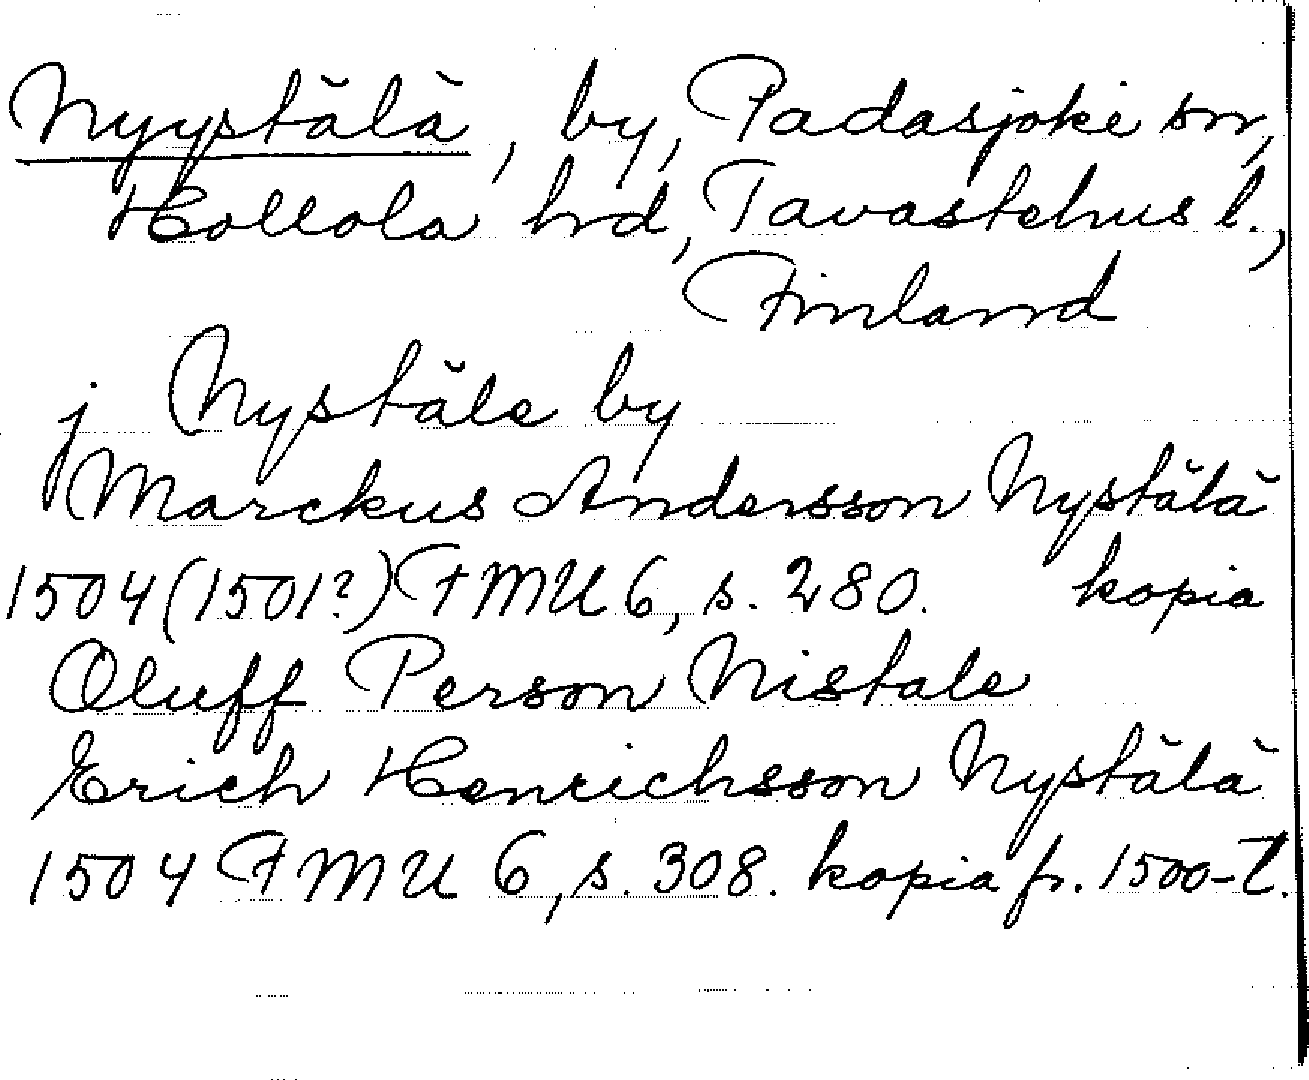 Nyystälä, by, Padasjoki sn,
Hollola hrd, Tavastehus l.,
Finland
j Nystäle by
Marckus Andersson Nystälä
1504 (1501?) FMU 6, s. 280. kopia
Oluff Person Nistale
Erich Henrichsson Nystälä
1504 FMU 6, s. 308. kopia fr. 1500-t.